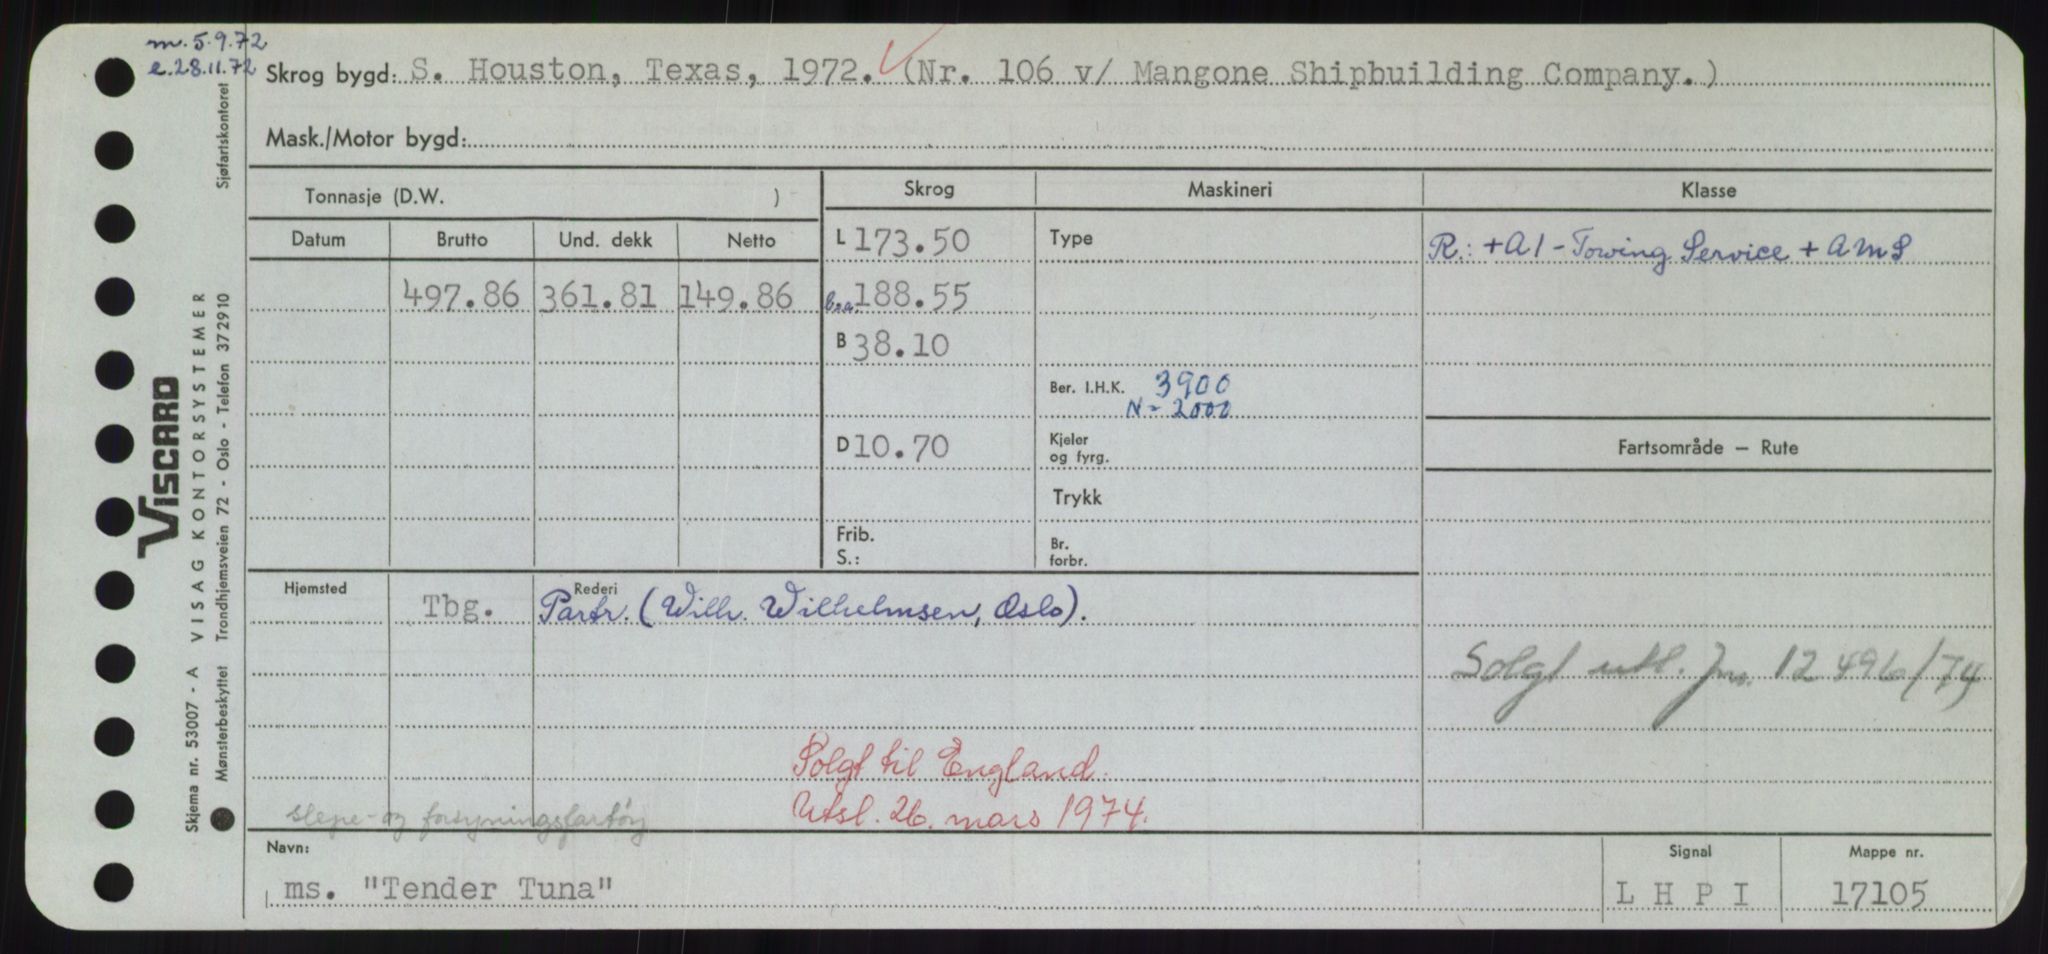 m. 5.9.72
e. 28.11.72
Skrog bygd: S. Houston, Texas, 1972. (Nr. 106 v/ Mangone Shipbuilding Company.)
Mask./Motor bygd:
Tonnasje (D.W. )
Skrog Maskineri Klasse
Datum Brutto Und. dekk Netto
L 173.50 Type R.: +A1 - Towing Service + AMS
497.86 361.81 149.86 b.a. 188.55
B 38.10
Ber. I.H.K. 3900
N = 2000
D 10.70 Kjeler og fyrg. Fartsområde — Rute
Trykk
Frib. S.: Br. forbr.
Hjemsted Rederi
Tbg. Partr. (Wilh. Wilhelmsen, Oslo).
Solgt utl. Jnr. 12496/74
Solgt til England.
Utsl. 26. mars 1974.
slepe- og forsyningsfartøy
Navn: Signal Mappe nr.
ms. "Tender Tuna" L H P I 17105
Skjema nr. 53007 - A VISAG KONTORSYSTEMER
VISCARD
Mønsterbeskyttet Trondhjemsveien 72 - Oslo - Telefon 372910 Sjøfartskontoret